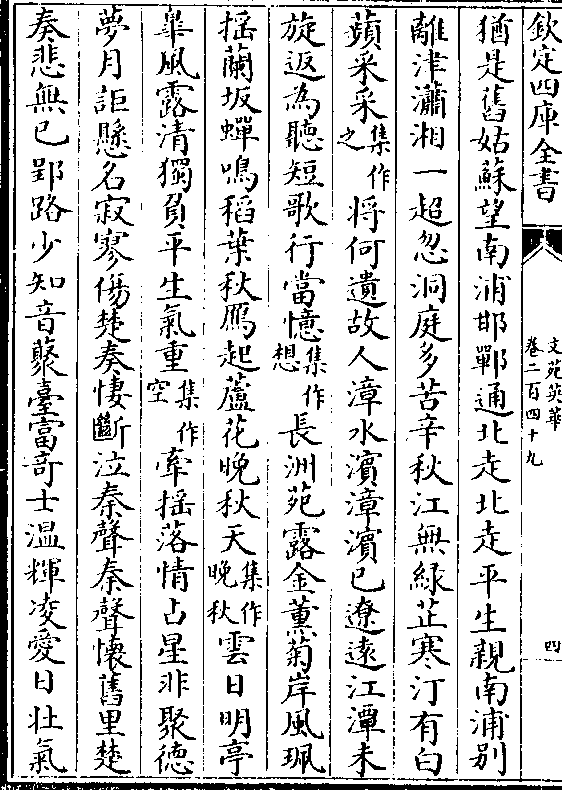 欽定四庫全書
文苑英華
卷二百四十九
四
猶是舊姑蘇望南浦邯鄲通北走北走平生親南浦别
離津瀟湘一超忽洞庭多苦辛秋江無緑芷寒汀有白
蘋采采集作之將何遺故人漳水濱漳濱已遼遠江潭未
旋返為聽短歌行當憶集作想長洲苑露金薫菊岸風珮
揺蘭坂蟬鳴稻葉秋雁起蘆花晚秋天集作晚秋雲日明亭
臯風露清獨負平生氣重集作空牽揺落情占星非聚徳
夢月詎懸名寂寥傷楚奏悽斷泣秦聲秦聲懷舊里楚
奏悲無已郢路少知音藂臺富奇士温輝凌愛日壮氣